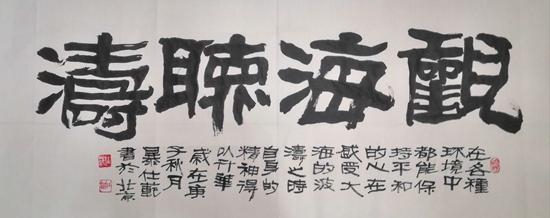 觀海聴濤
在各種
环境中
都能保
持平和
的心在
感受大
海的波
濤之時
自身的
精神得
以升華
歲在庚
子秋月
暴仕範
書於北京